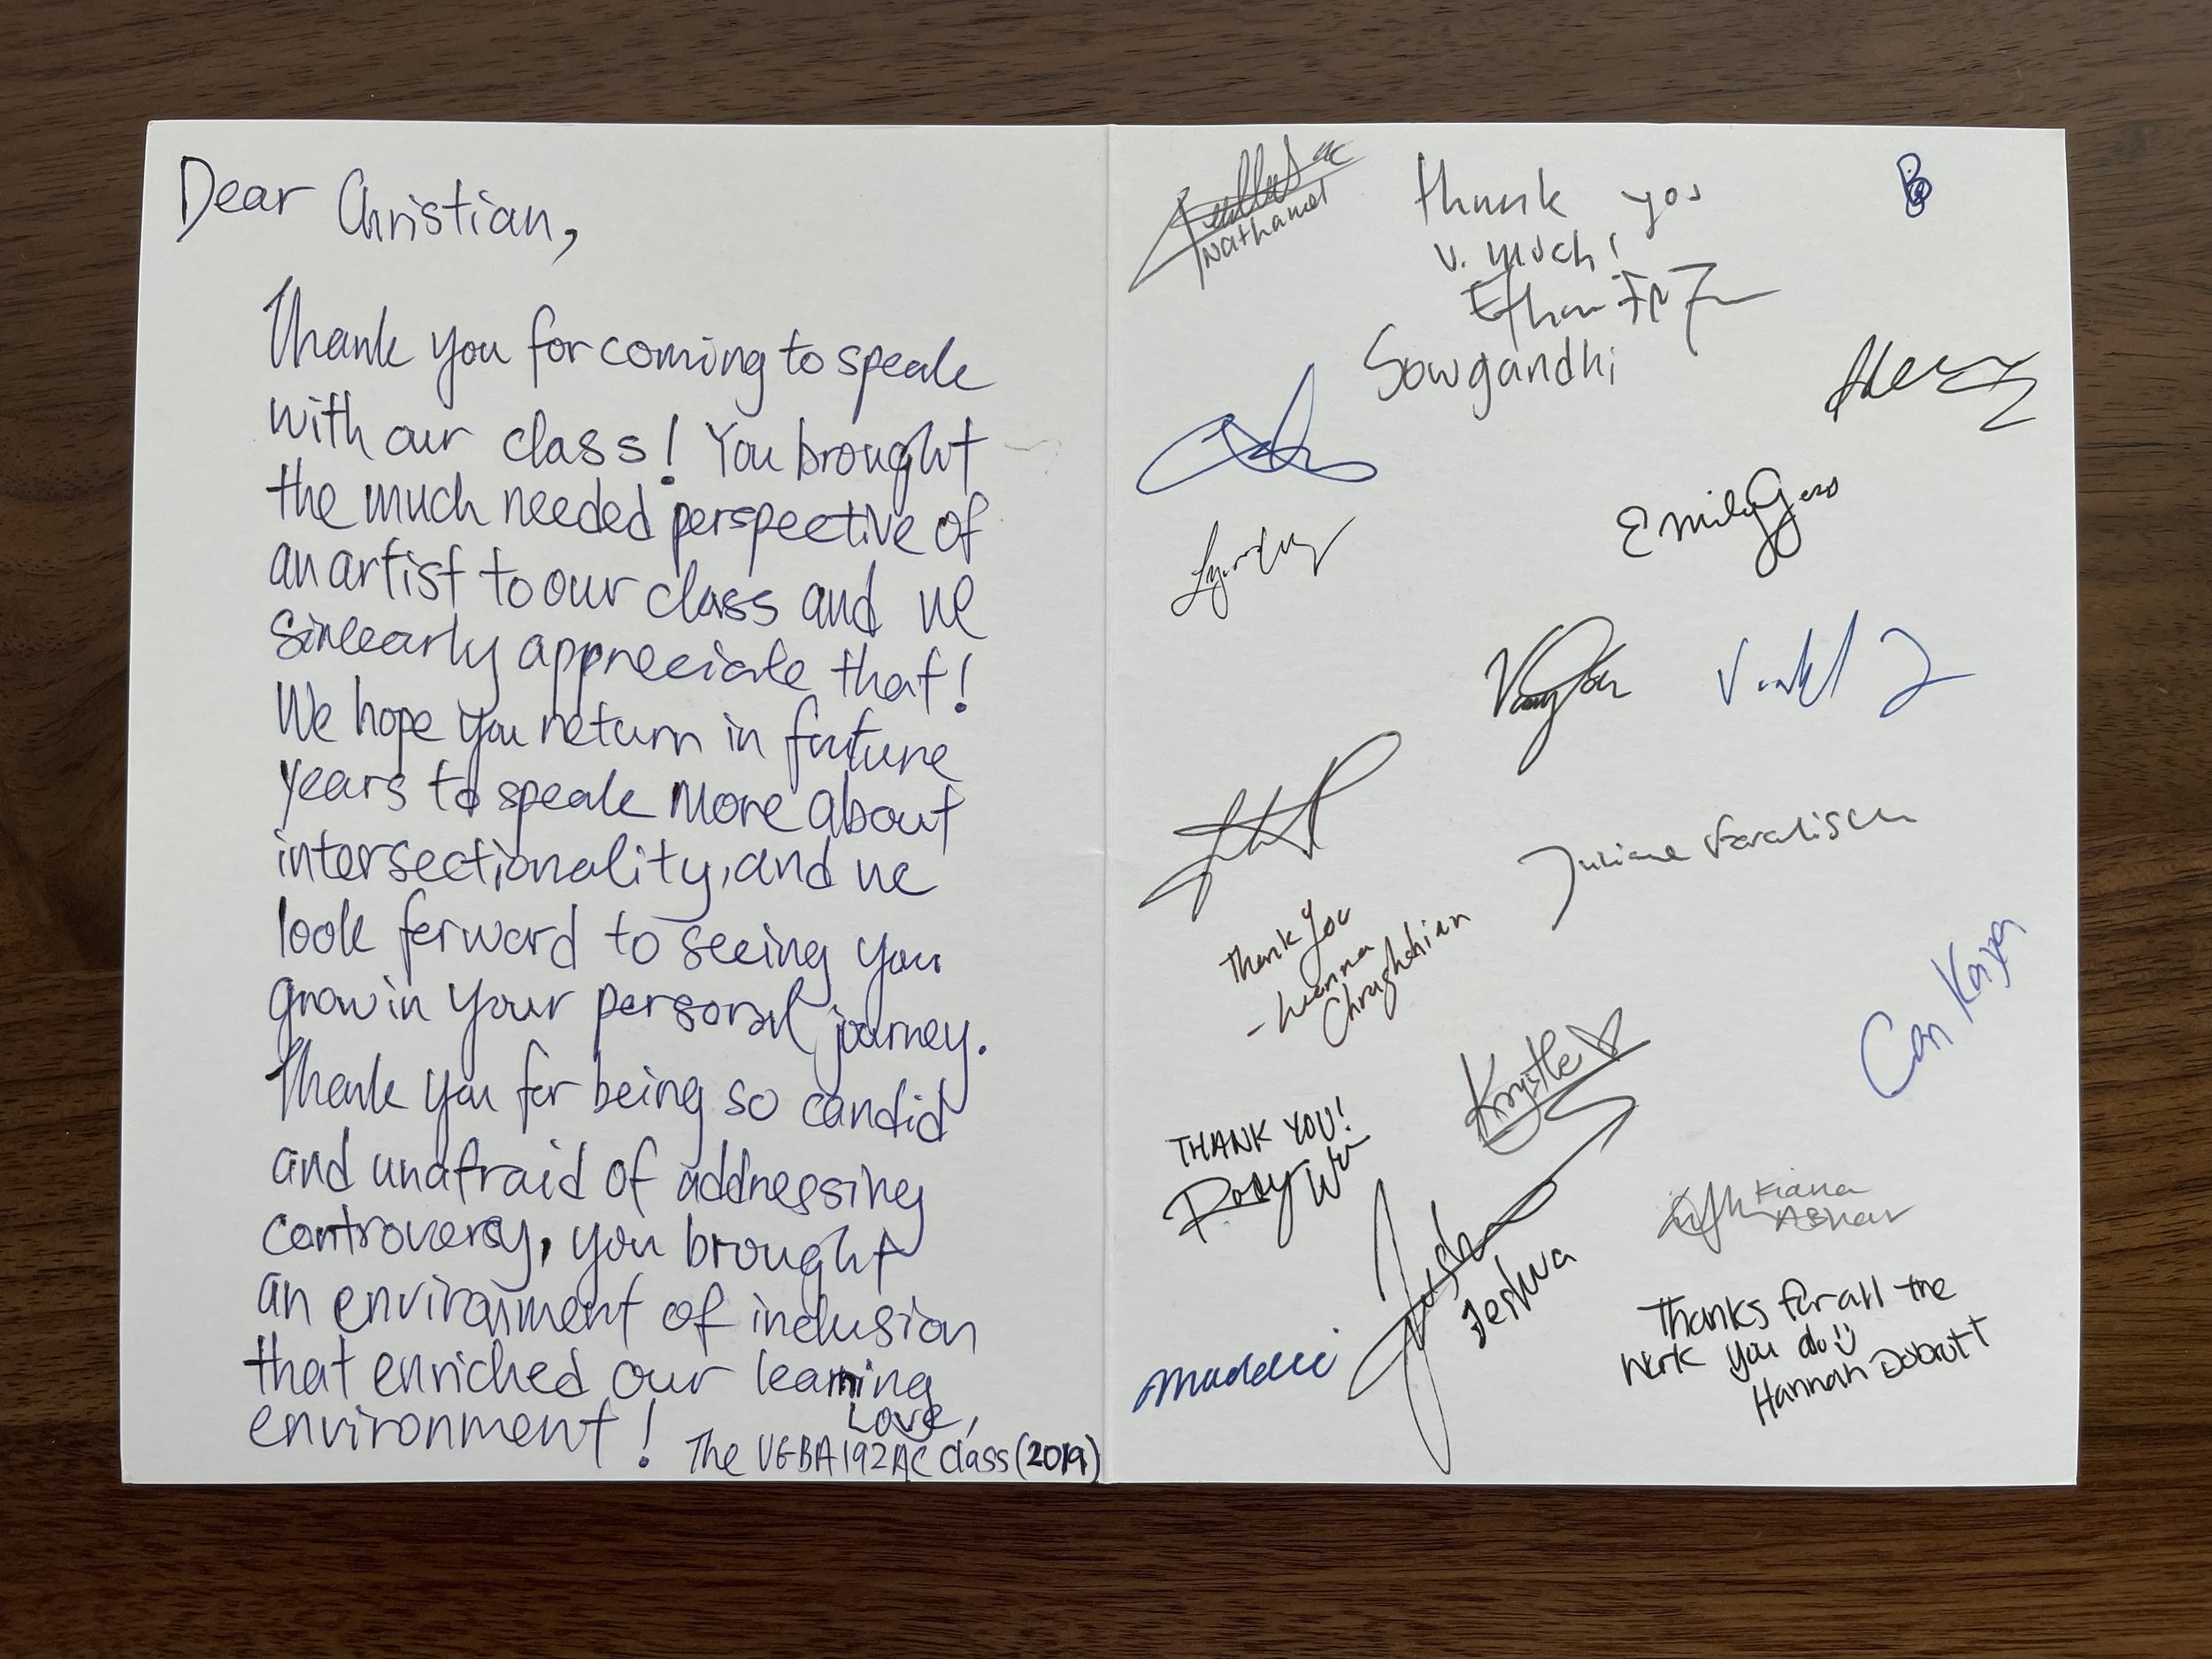 Dear Christian,
Thank you for coming to speak
with our class! You brought
the much needed perspective of
an artist to our class and we
sinceearly appreciate that!
We hope you return in future
years to speak more about
intersectionality, and we
look forward to seeing you
grow in your personal journey.
Thank you for being so candid
and unafraid of addressing
controversy, you brought
an environment of inclusion
that enriched our learning
environment!
Love,
The UGBA192AC class (2019)
Nathaniel
thank you
v. much!
Ethan
Sowgandhi
Emily
Juliane
Thank you
Chraghchian
Can Kaya
Krystle
THANK YOU!
Rosy Wu
Kiana
Ashar
Joshua
Jeshua
Thanks for all the
work you do
Hannah